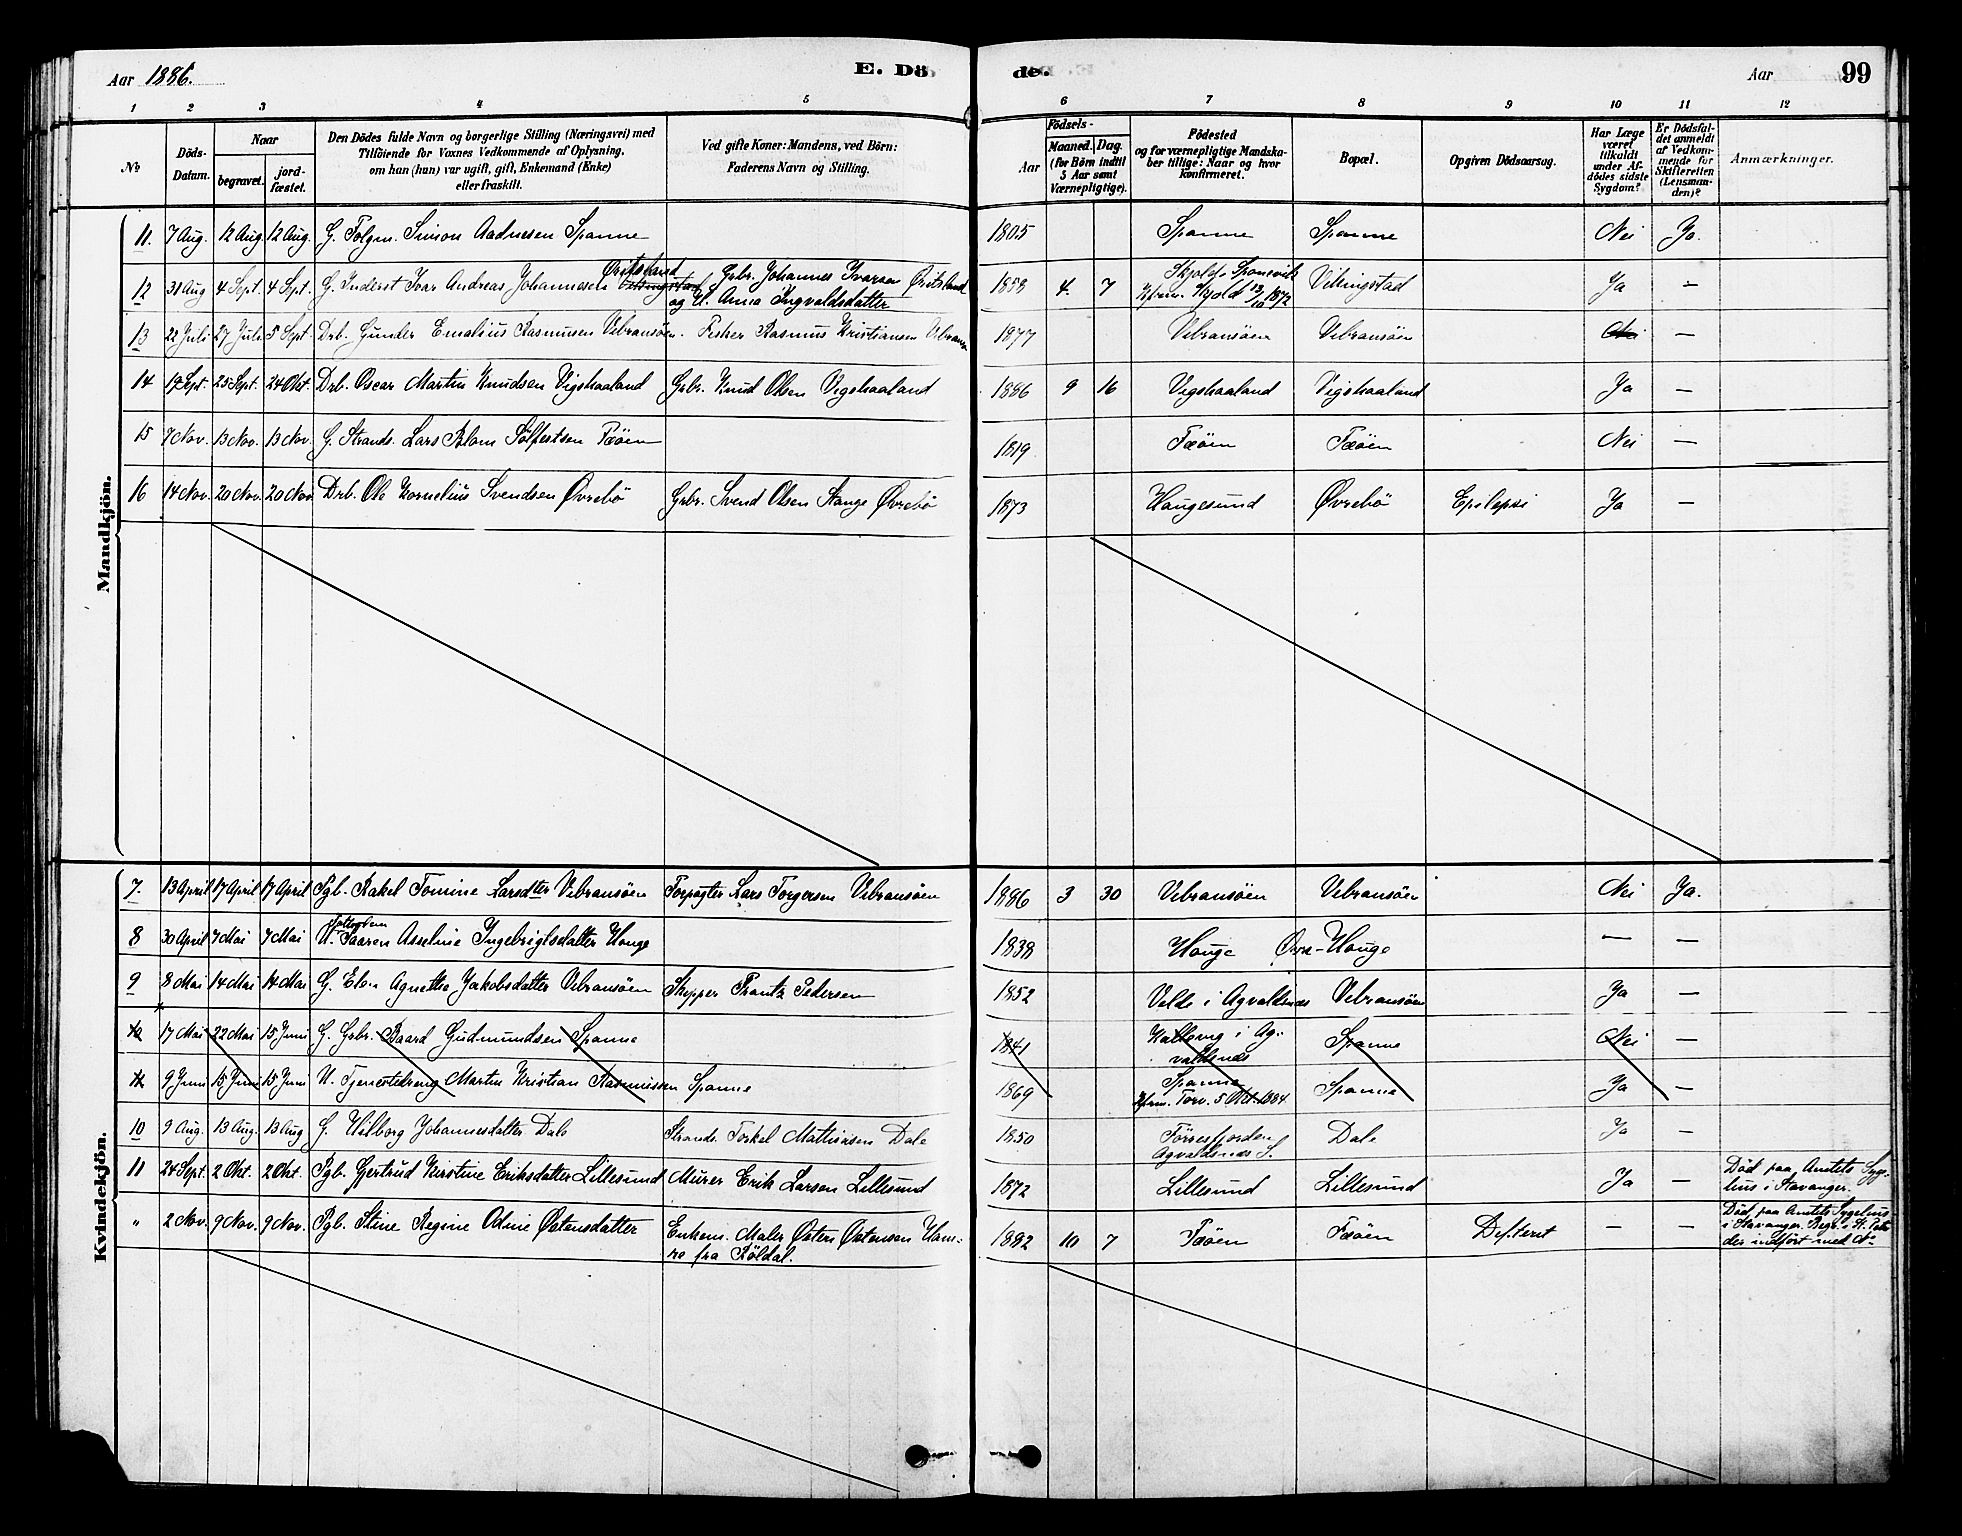 Aar 1886.
E. Dö
de.
Aar
99
1 2 3 4 5 6 7 8 9 10 11 12
No
Döds-
Datum.
Naar
begravet.
jord-
fæstet.
Den Dödes fulde Navn og borgerlige Stilling (Næringsvei) med
Tilföiende for Voxnes Vedkommende af Oplysning,
om han (hun) var ugift, gift, Enkemand (Enke)
eller fraskilt.
Ved gifte Koner: Mandens, ved Börn:
Faderens Navn og Stilling.
Födsels-
Aar
Maaned. Dag.
(for Börn indtil
5 Aar samt
Værnepligtige).
Födested
og for værnepligtige Mandska-
ber tillige: Naar og hvor
konfirmeret.
Bopæl.
Opgiven Dödsaarsag.
Har Læge
været
tilkaldt
under Af-
dödes sidste
Sygdom?
Er Dödsfal-
det anmeldt
af Vedkom-
mende for
Skifteretten
(Lensman-
den)?
Anmærkninger.
Mandkjön.
11. 7 Aug. 12 Aug. 12 Aug. G. Folgm. Simon Aadnesen Spanne 1805 Spanne Spanne Nei Ja.
12 31 Aug 4 Sept. 4 Sept. G. Inderst Ivar Andreas Johannesen Øritsland Grbr. Johannes Ivarsen Øritsland
og U. Anna Ingvaldsdatter 1858 4. 7 Skjold. Sponevik
Kfrm. Skjold 13/10 1872 Vikingstad Ja -
13 22 Juli 27 Juli 5 Sept. Drb. Gunder Emalius Rasmusen Vibransöen. Fisker Rasmus Kristiansen Vibransö 1877 Vibransöen Vibransöen Nei -
14 19 Sept. 25 Sept. 24 Okt. Drb. Oscar Martin Knudsen Vigshaaland Grbr. Knud Olsen Vigshaaland 1886 9 16 Vigshaaland Vigshaaland Ja -
15 7 Nov. 13 Nov. 13 Nov. G. Strands. Lars Blom Sölfestsen Fæöen 1819 Fæöen Fæöen Nei -
16 14 Nov. 20 Nov. 20 Nov. Drb. Ole Kornelius Svendsen Øvrebö Grbr. Svend Olsen Stange Øvrebö 1873 Haugesund Øvrebö Epilepsi Ja -
Kvindekjön.
7. 13 April 17 April 17 April Pgb. Rakel Tomine Larsdter Vibransöen Forpagter Lars Torgersen Vibransöen 1886 3 30 Vibransöen Vibransöen Nei Ja.
8 30 April 7 Mai 7 Mai U. Taaren Asseline Ingebrigtsdatter Hauge 1838 Hauge Øvre-Hauge - -
9 8 Mai 14 Mai 14 Mai G. Elen Agnethe Jakobsdatter Vibransöen Skipper Frantz Pedersen 1852 Velde i Agvaldsnæs Vibransöen Ja -
10 17 Mai 22 Mai 15 Juni G. Grbr. Baard Gudmundsen Spanne 1841 Kallevig i Ag-
valdsnæs Spanne Nei -
11 9 Juni 15 Juni 15 Juni U. Tjenestedreng Martin Kristian Rasmussen Spanne 1869 Spanne
Kfrm. Torv. 5 Okt. 1884. Spanne Ja -
10 9 Aug. 13 Aug. 13 Aug G. Valborg Johannesdatter Dale Strands. Torkel Mathiasen Dale 1850 Förresfjorden
Agvaldsnæs S. Dale Ja -
11 24 Sept. 2 Okt. 2 Okt. Pgb. Gjertrud Kirstine Eriksdatter Lillesund Murer Erik Larsen Lillesund 1872 Lillesund Lillesund Ja - Död paa Amtets Syge-
hus i Stavanger.
" 2 Nov. 9 Nov. 9 Nov. Pgb. Stine Regine Odine Østensdatter Enkem. Maler Østen Østensen Ham-
re fra Röldal. 1882 10 7 Fæöen Fæöen Difterit - - Död paa Amtets Sygehus
i Stavanger. Begr. i St. Petri
der indfört med No